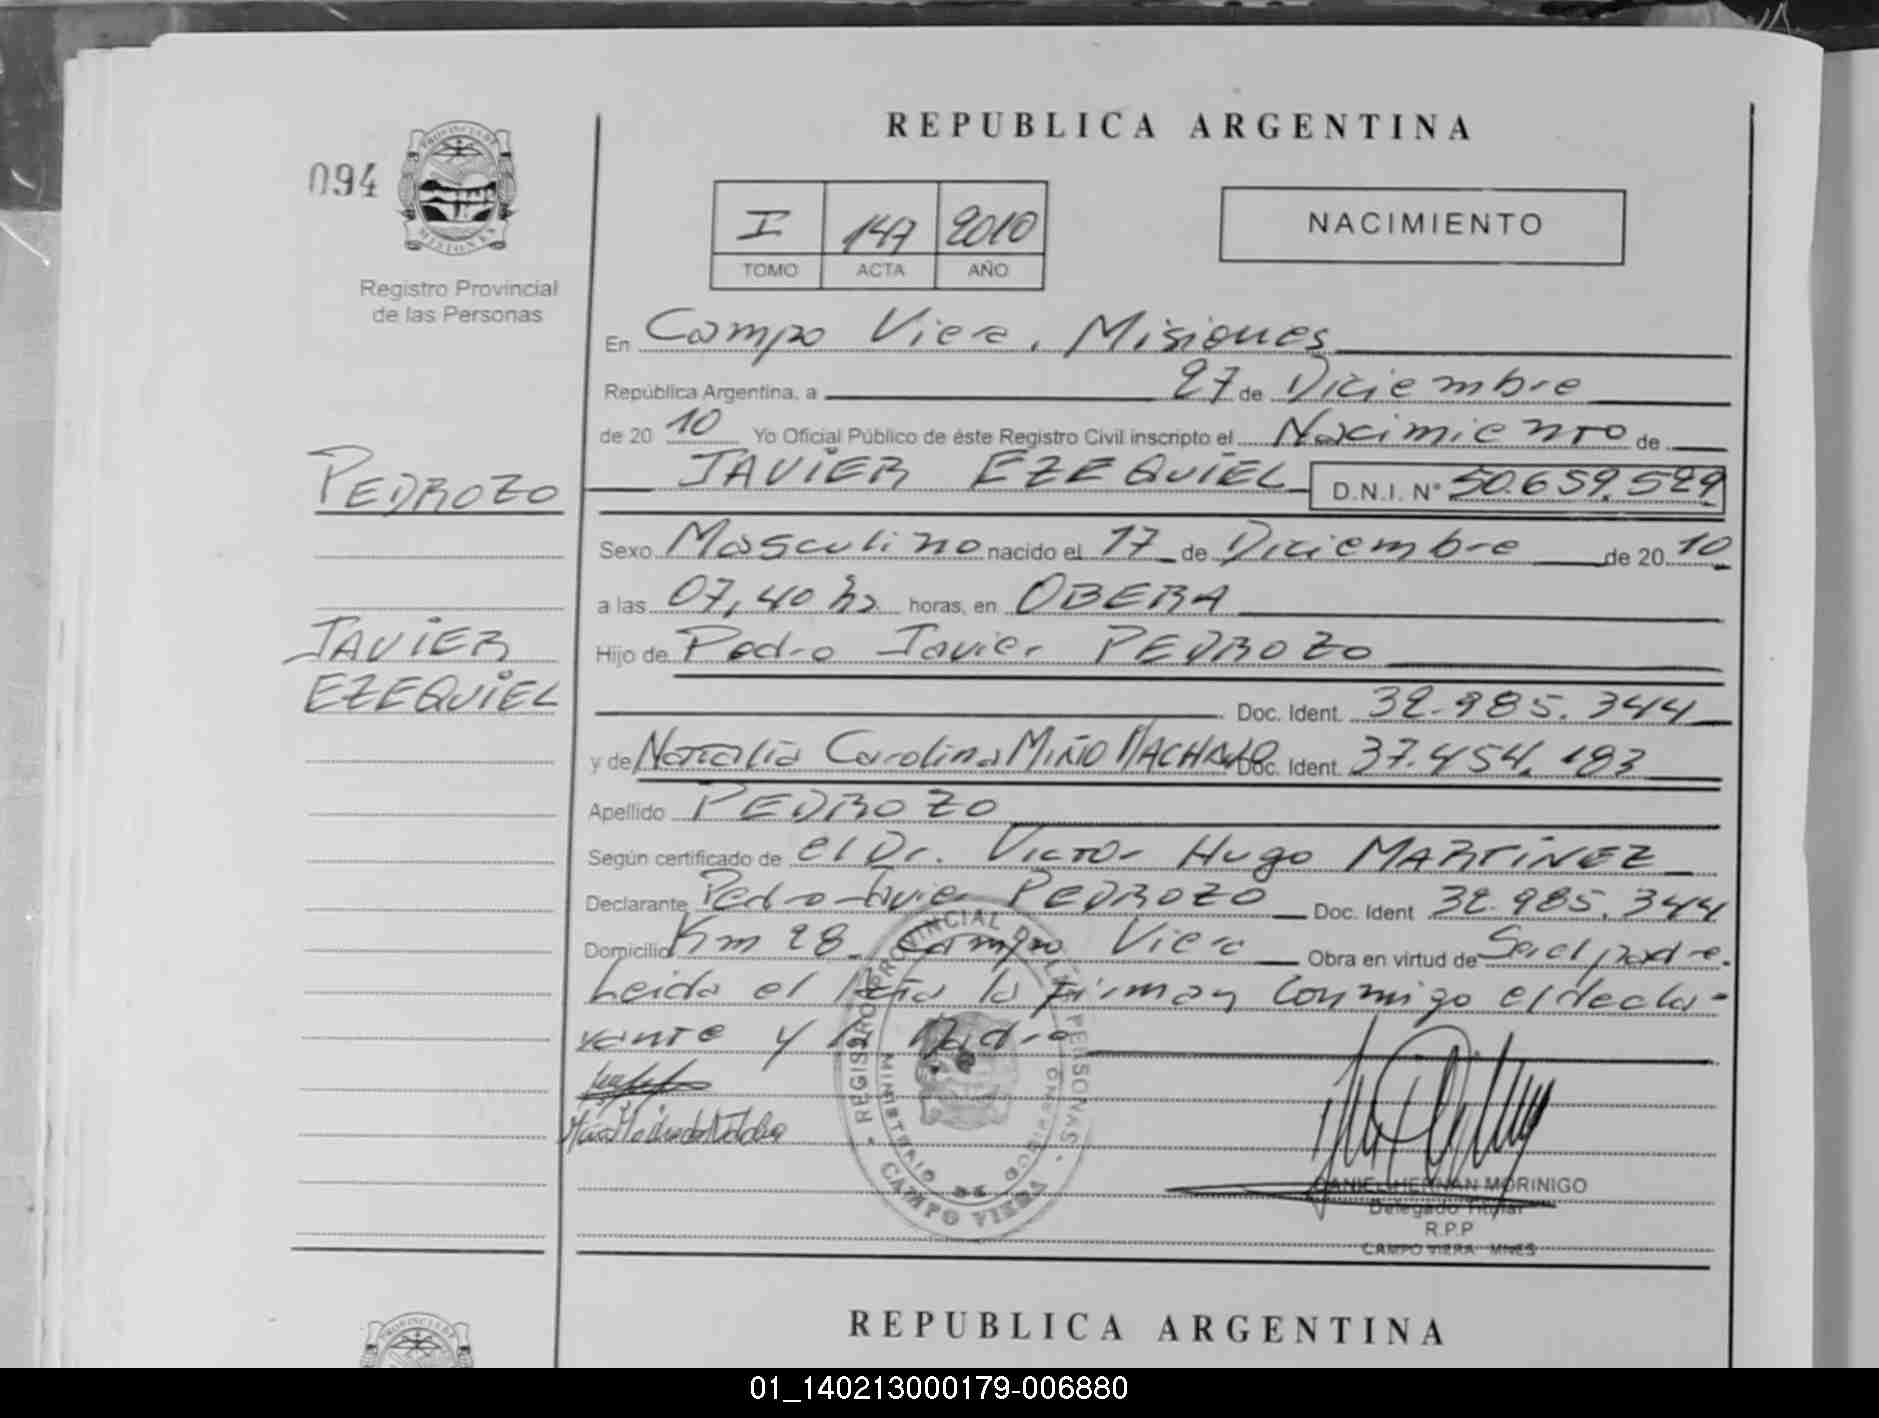 094
PROVINCIA DE
MISIONES
Registro Provincial
de las Personas
REPUBLICA ARGENTINA
I 147 2010
TOMO ACTA AÑO
NACIMIENTO
En Campo Viera, Misiones
República Argentina, a 27 de Diciembre
de 20 10 Yo Oficial Público de éste Registro Civil inscripto el Nacimiento de
PEDROZO
JAVIER EZEQUIEL D.N.I. N° 50.659.529
Sexo Masculino nacido el 17 de Diciembre de 20 10
a las 07,40 hs horas, en OBERA
JAVIER
EZEQUIEL
Hijo de Pedro Javier PEDROZO
Doc. Ident. 32.985.344
y de Natalia Carolina MIÑO MACHADO Doc. Ident. 37.454.183
Apellido PEDROZO
Según certificado de el Dr. Victor Hugo MARTINEZ
Declarante Pedro Javier PEDROZO Doc. Ident 32.985.344
Domicilio Km 28 Campo Viera Obra en virtud de Ser el padre.
Leida el Acta la Firman Conmigo el decla-
rante y la Madre
REGISTRO PROVINCIAL DE LAS PERSONAS
MINISTERIO DE GOBIERNO
CAMPO VIERA
DANIEL HERNAN MORINIGO
Delegado Titular
R.P.P
CAMPO VIERA MNES
PROVINCIA DE
REPUBLICA ARGENTINA
01_140213000179-006880